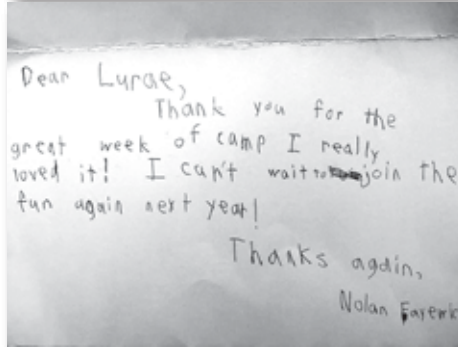 Dear Lurae,
Thank you for the
great week of camp I really
loved it! I can't wait to join the
fun again next year!
Thanks again,
Nolan